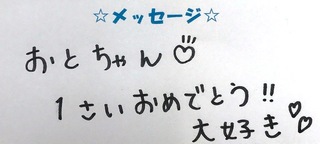 ☆メッセージ☆
おとちゃん♡
1さいおめでとう!!
大好き♡♡